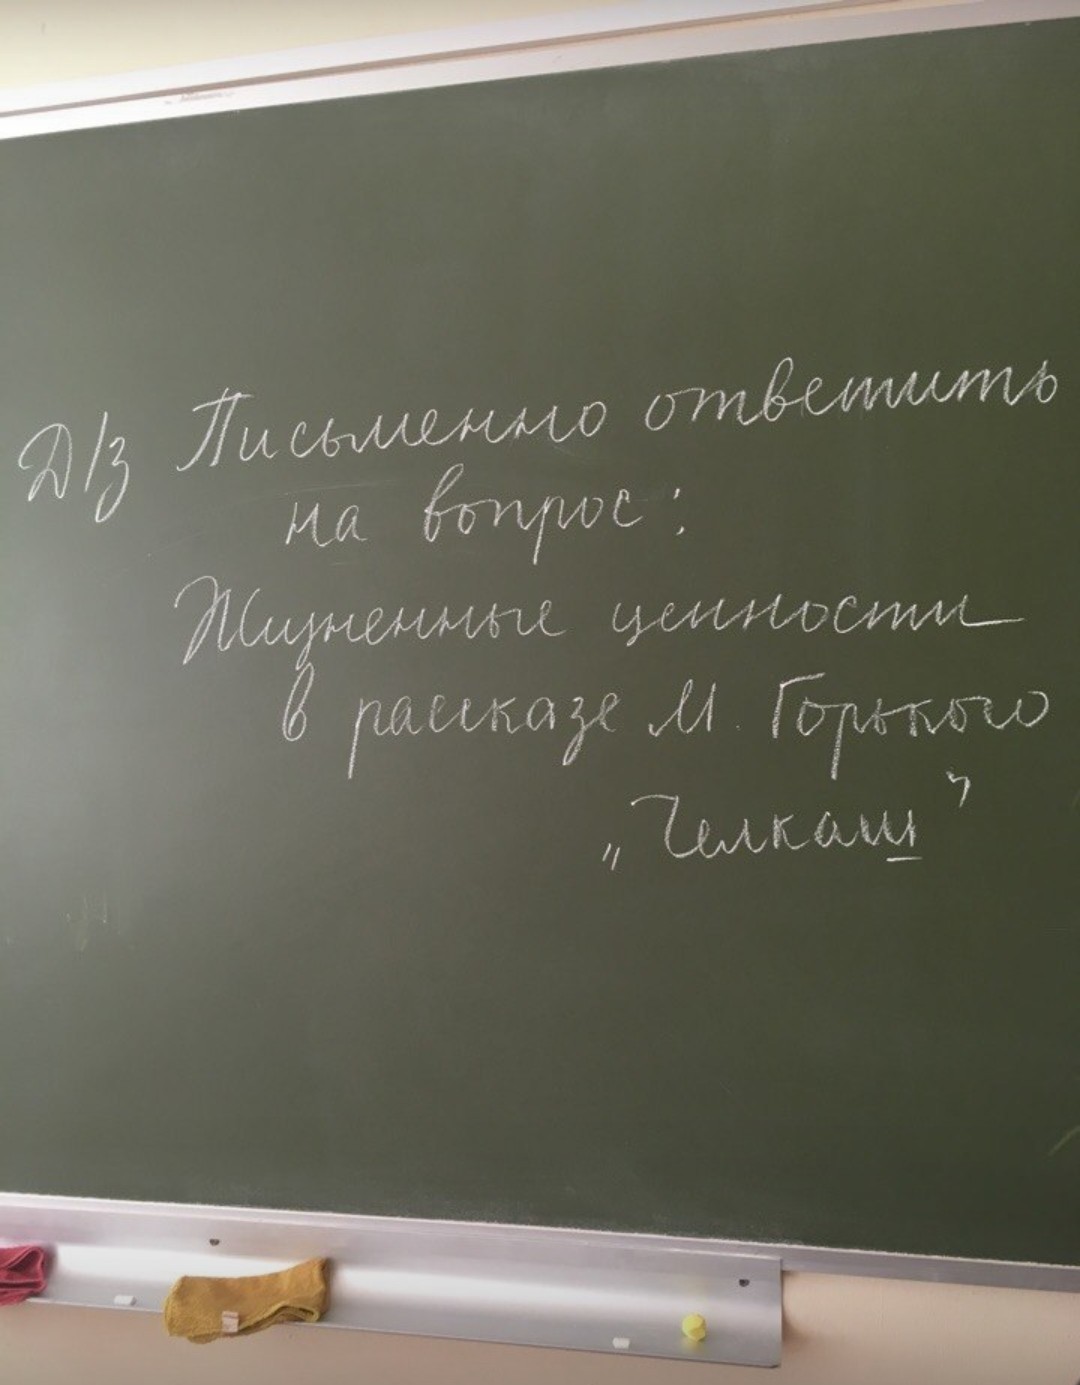 Д/з Письменно ответить
на вопрос:
Жизненные ценности
в рассказе М. Горького
„Челкаш”